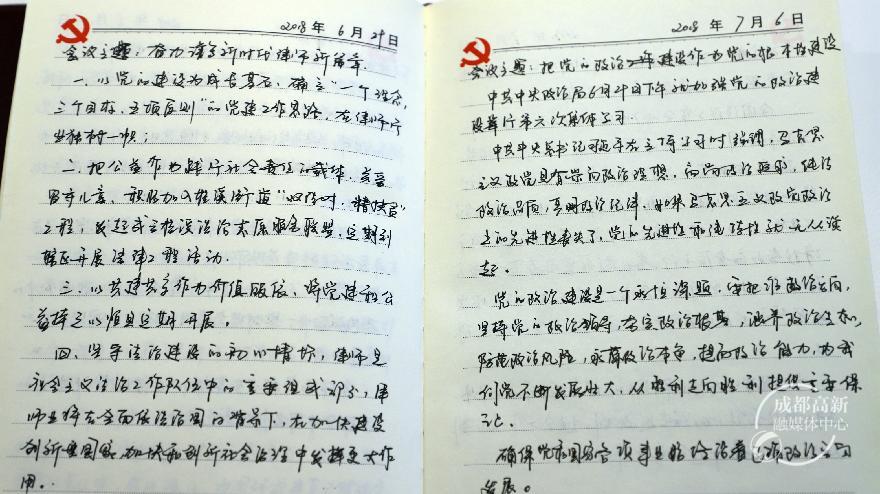 2018年6月29日
会议主题：奋力谱写新时代律师新篇章
一、以党的建设为成吉基石，确立"一个理念，
三个目标，五项原则"的党建工作思路，在律师行
业独树一帜；
二、把公益作为践行社会责任的载体，
留守儿童，积极加入桂溪街道"双结对，精扶贫"
工程，定期到
辖区开展法律工程活动.
三、以共建共享作为价值版依，将党建和公
益择之以恒且定期开展。
四、坚守法治建设的初心情怀，律师是
社会主义法治工作队伍中的重要组成部分，律
师业将在全面依法治国的背景下，在加快建设
创新型国家，加快和创新社会治理中发挥更大作
用。
2018年7月6日
会议主题：把党的政治建设作为党的根本性建设
中共中央政治局6月29日下午就加强党的政治建
设举行第六次集体学习
中共中央总书记习近平在主持学习时强调，马克思
主义政党具有崇高政治理想，高尚政治追求，纯洁
政治品质，严明政治纪律，如果马克思主义政党政治
上的先进性丧失了，党的先进性和纯洁性就无从谈
起。
党的政治建设是一个永恒课题，要把准政治方向，
坚持党的政治领导，夯实政治根基，涵养政治生态，
防范政治风险，永葆政治本色，提高政治能力，为我
们党不断发展壮大，从胜利走向胜利提供重要保
证。
确保党和国家各项事业始终沿着正确政治方向
发展。
成都高新
融媒体中心